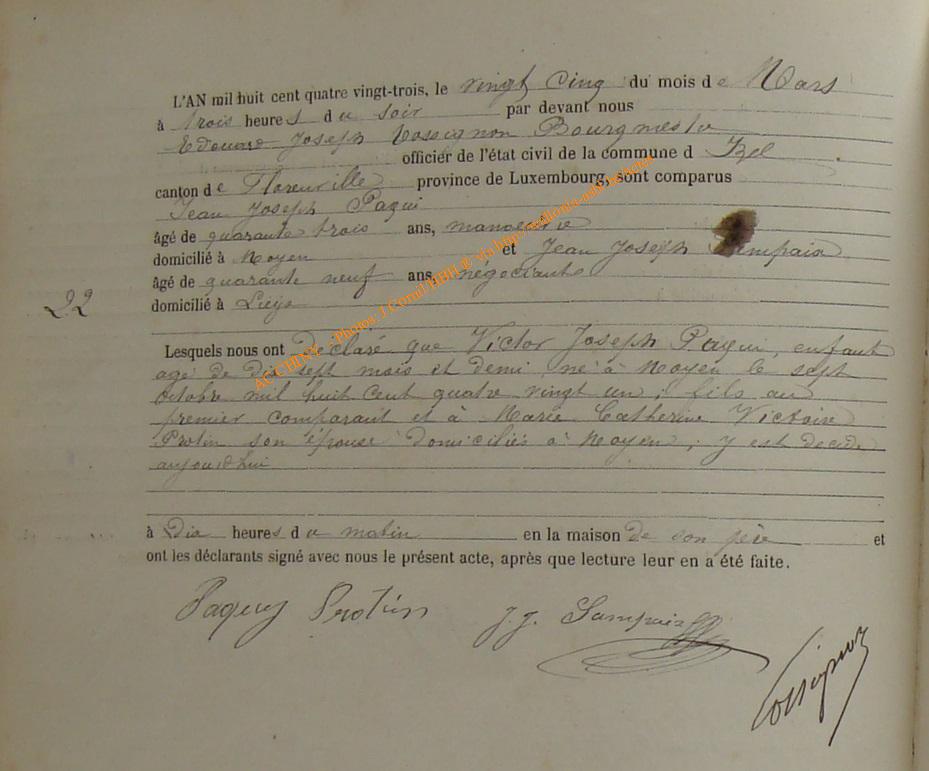 L'AN mil huit cent quatre vingt-trois, le vingt cinq du mois de Mars
à trois heures du soir par devant nous
Edouard Joseph Rossignon Bourgmestre
officier de l'état civil de la commune d Izel
canton de Florenville province de Luxembourg, sont comparus
Jean Joseph Paqui
âgé de quarante trois ans, manoeuvre
domicilié à Moyen et Jean Joseph Sampaix
âgé de quarante neuf ans, négociant
22 domicilié à
Lesquels nous ont Déclaré que Victor Joseph Paqui, enfant
agé de dix sept mois et demi né à Moyen le sept
Octobre mil huit cent quatre vingt un, fils au
premier comparant et à Marie Catherine Victoire
Protin son épouse domiciliés à Moyen, y est décédé
aujourdhui
à Dix heures du matin en la maison de son père et
ont les déclarants signé avec nous le présent acte, après que lecture leur en a été faite.
Paquy Protin J. J. Sampaix
Rossignon